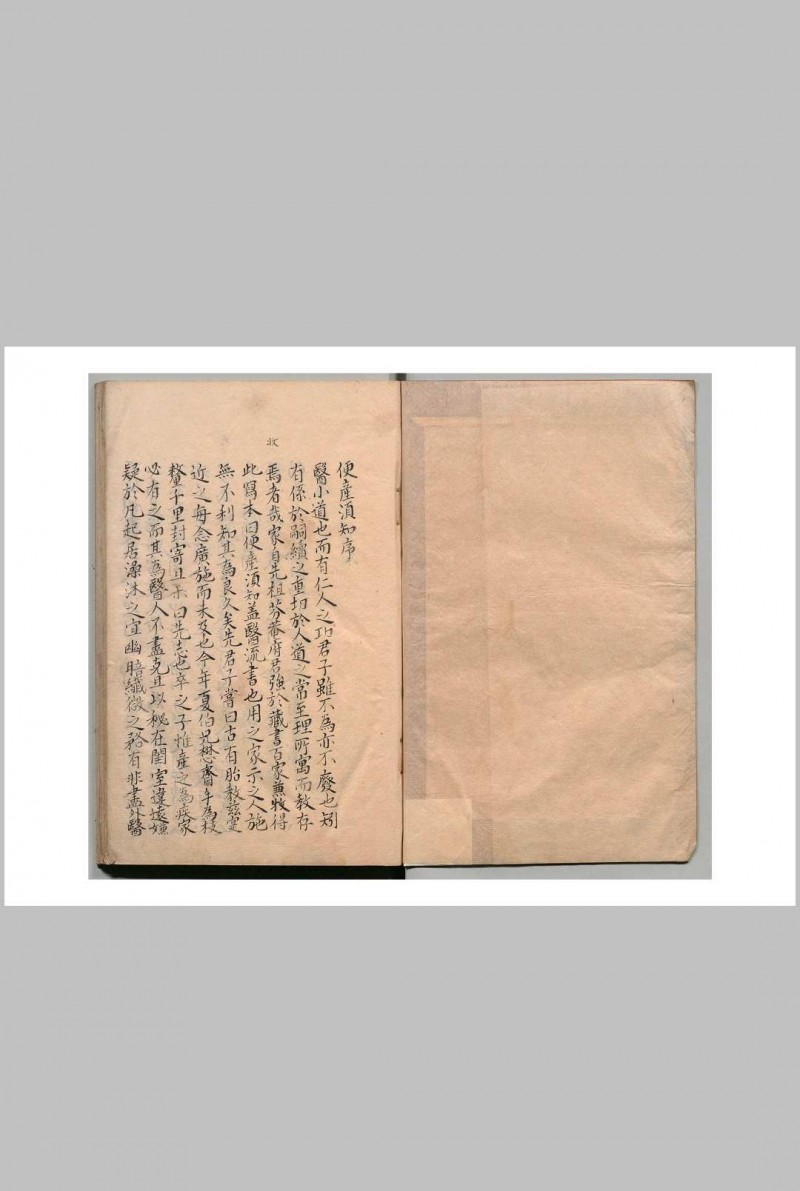 便產須知序
醫小道也而有仁人之功君子雖不為亦不廢也矧
有係於嗣續之重切於人道之常至理所寓而教存
焉者哉家自先祖芬菴府君強於藏書百家兼收得
此寫本曰便產須知盖醫流書也用之家示之人施
無不利知其為良久矣先君子嘗曰古有胎教茲寔
近之每念廣施而未及也今年夏伯兄懋齋手為校
釐千里封寄且示曰先志也卒之子惟產之為疾家
必有之而其為醫人不盡克且以秘在閨室違遠嫌
疑於凡起居澡沐之宜幽暗纎微之務有非盡外醫
收